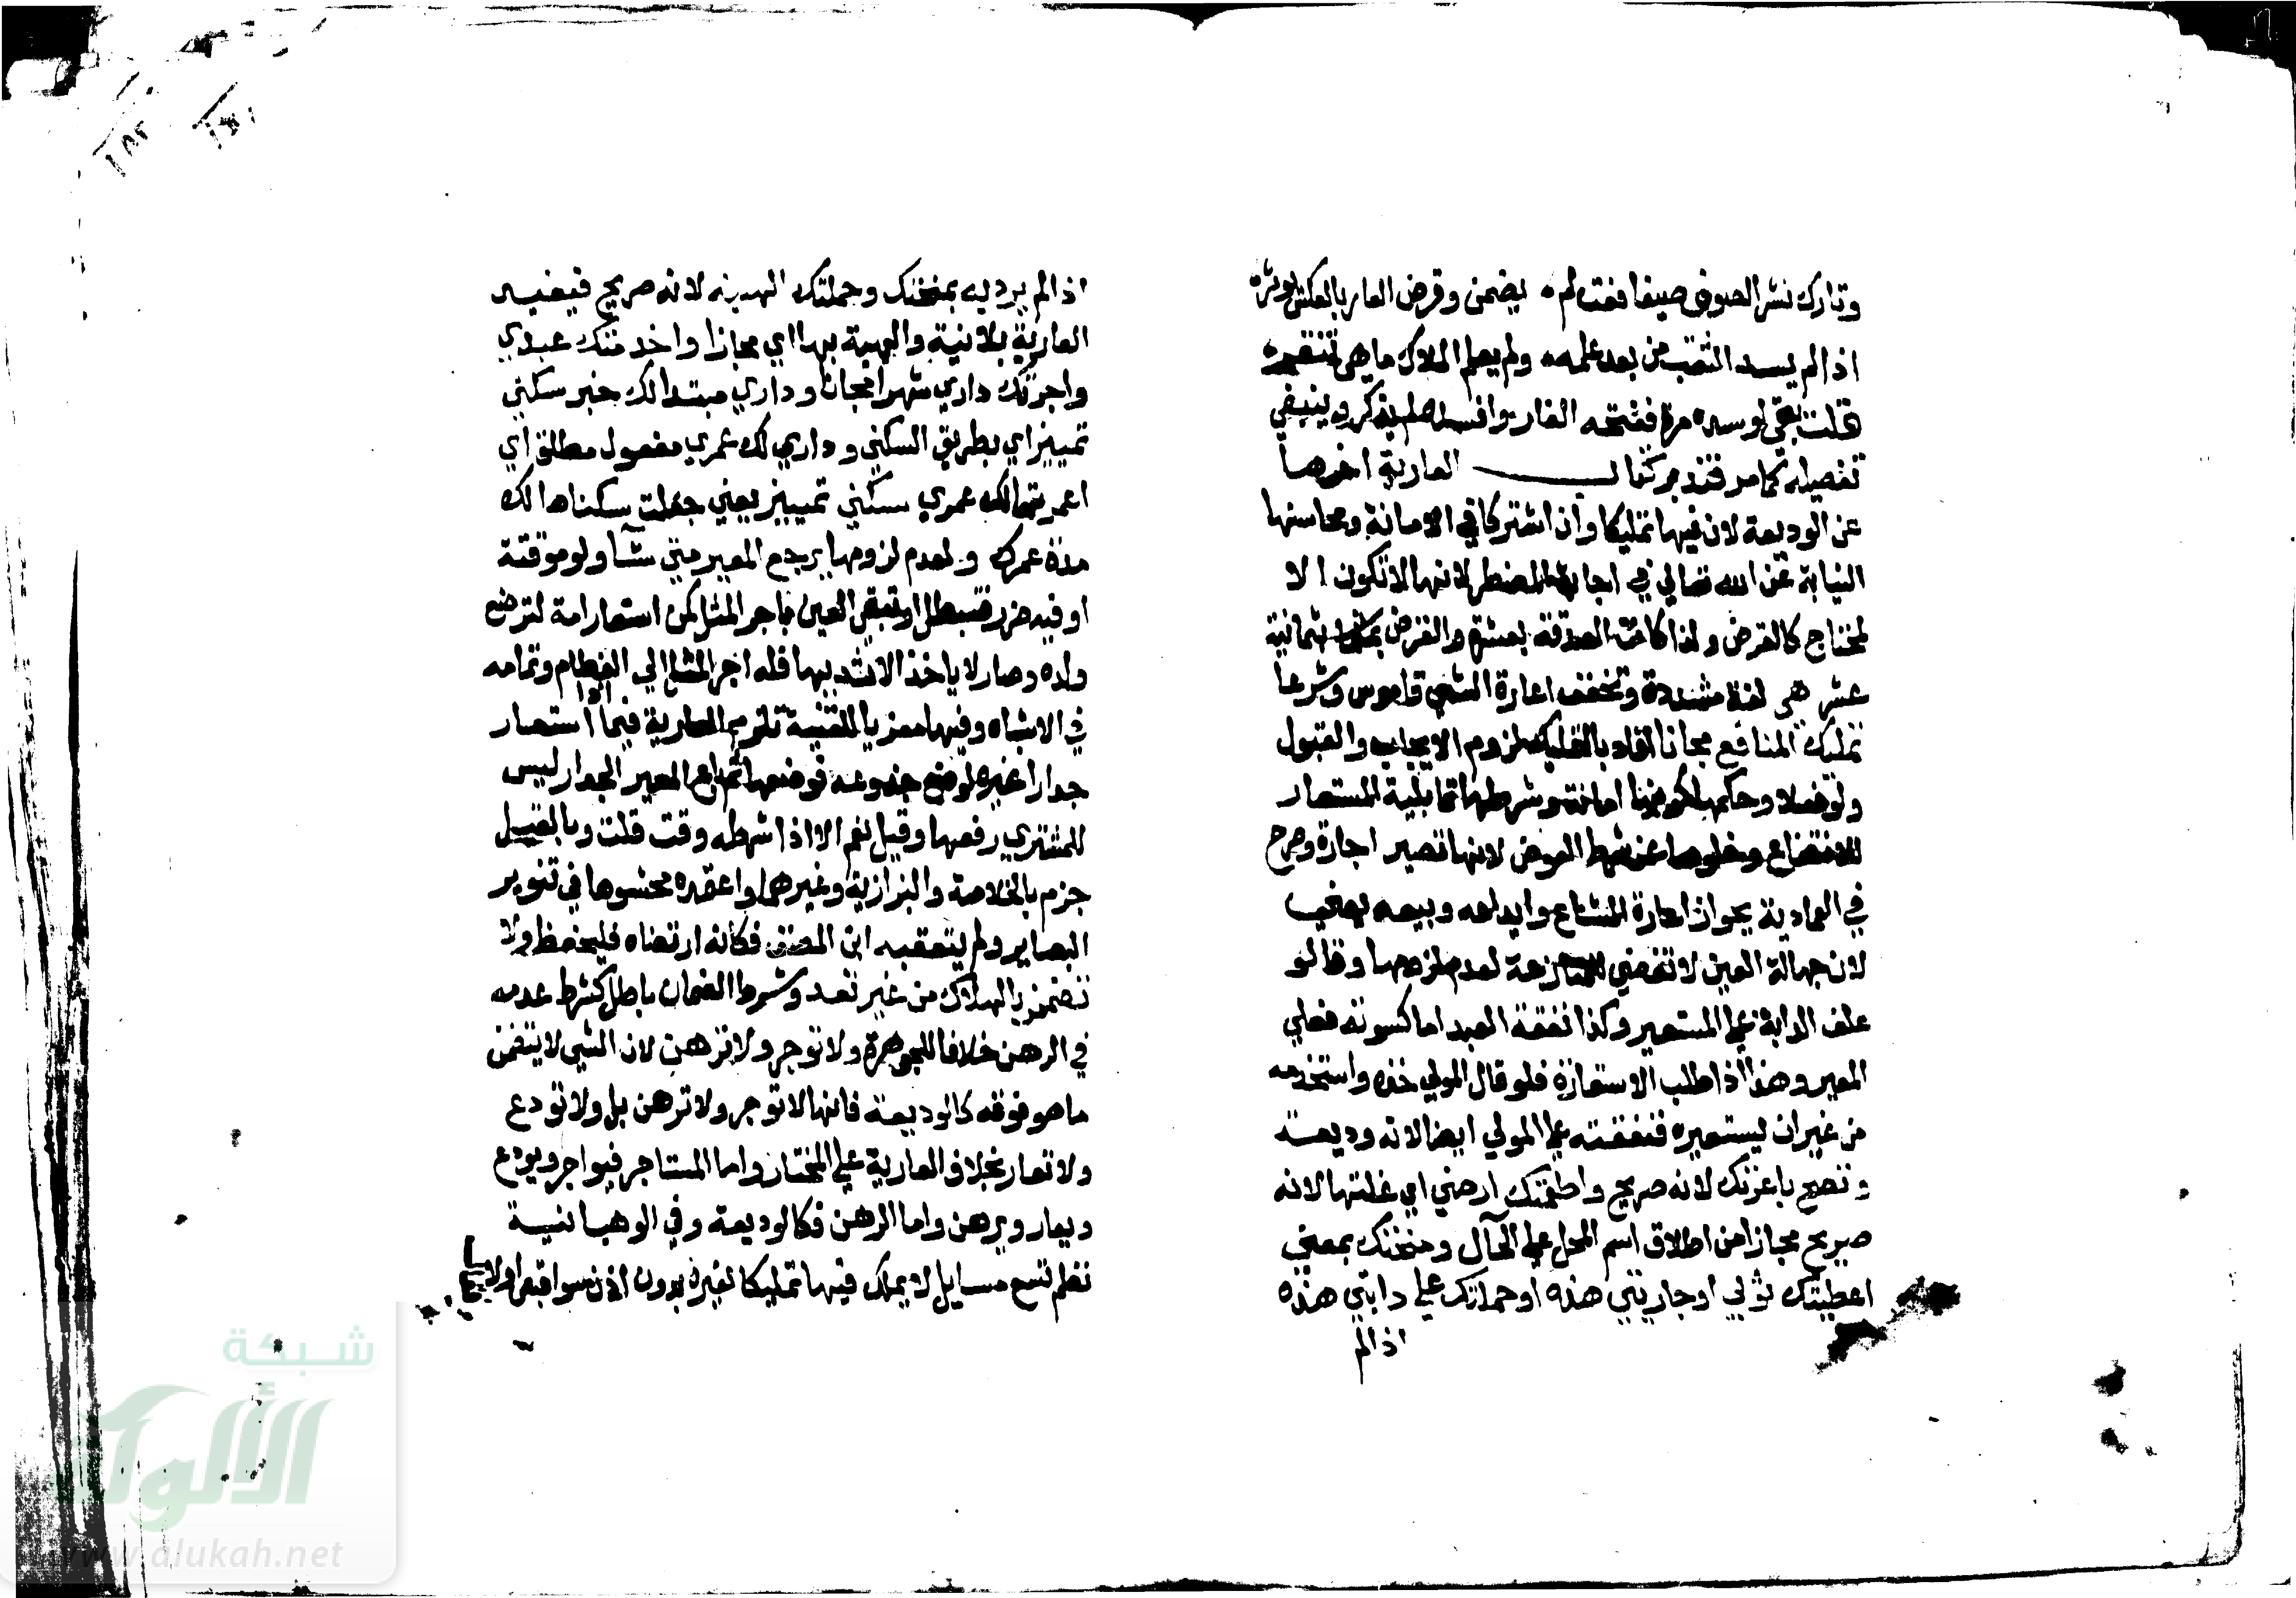 وتارك نشر الصوف صيفا فعث لم يضمن وقرض الفار بالعكس يوثر
اذا لم يسد الثقب من بعد علمه ولم يعلم الملاك ما هي تنقر
قلت بقي لو سده مرة ففتحه الفار وافسده لم يذكر وينبغي
تفصيله كما مر فتدبر كتاب العارية اخرها
عن الوديعة لان فيها تمليكا وان اشتركا في الامانة ومحاسنها
النيابة عن الله تعالي في اجابة المضطر لانها لا تكون الا
لمحتاج كالقرض ولذا كانت الصدقة بعشرة والقرض بثمانية
عشر هي لغة مشددة وتخفف اعارة الشي قاموس وشرعا
تمليك المنافع مجانا افاد بالتمليك لزوم الايجاب والقبول
ولو فعلا وحكمها كونها امانة وشرطها قابلية المستعار
للانتفاع وخلوها عن شرط العوض لانها تصير اجارة وصرح
في العمادية بجواز اعارة المشاع وايداعه وبيعه يعني
لان جهالة العين لا تفضي للمنازعة لعدم لزومها وقالو
علف الدابة علي المستعير وكذا نفقة العبد اما كسوته فعلي
المعير وهذا اذا طلب الاستعارة فلو قال المولي خذه واستخدمه
من غير ان يستعيره فنفقته علي المولي ايضا لانه وديعة
وتصح باعرتك لانه صريح واطعمتك ارضي اي غلتها لانه
صريح مجازا من اطلاق اسم المحل علي الحال ومنحتك بمعني
اعطيتك ثوبي او جاريتي هذه او حملتك علي دابتي هذه
اذا لم
اذا لم يرد به بمنحتك وحملتك الهبة لانه صريح فيفيد
العارية بلا نية والهبة بها اي مجازا واخدمتك عبدي
واجرتك داري شهرا مجانا وداري مبتدا لك خبر سكني
تمييز اي بطريق السكني وداري لك عمري مفعول مطلق اي
اعمرتها لك عمري سكني تمييز يعني جعلت سكناها لك
مدة عمرك ولعدم لزومها يرجع المعير متي شآ ولو موقتة
او فيه ضرر فتبطل وتبقي العين باجر المثل كمن استعار امة لترضع
ولده وصار لا ياخذ الا ثديها فله اجر المثل الي الفطام وتمامه
في الاشباه وفيها معزيا للقنية تلزم العارية فيما اذا استعار
جدار غيره لوضع جذوعه فوضعها ثم باع المعير الجدار ليس
للمشتري رفعها وقيل نعم الا اذا شرطه وقت قلت وبالقيل
جزم بالخلاصة والبزازية وغيرهما واعتمده محشوها في تنوير
البصاير ولم يتعقبه ابن المصنف فكانه ارتضاه فليحفظ ولا
تضمن بالهلاك من غير تعد وشرط الضمان باطل كشرط عدمه
في الرهن خلافا للجوهرة ولا توجر ولا ترهن لان الشي لا يتضمن
ما هو فوقه كالوديعة فانها لا توجر ولا ترهن بل ولا تودع
ولا تعار بخلاف العارية علي المختار واما المستاجر فيواجر ويودع
ويعار ويرهن واما الرهن فكالوديعة وفي الوهبانية
نظم تسع مسايل لا يملك فيها تمليكا لغيره بدون اذن سوا قبض اولا
شبكة
الألوكة
www.alukah.net